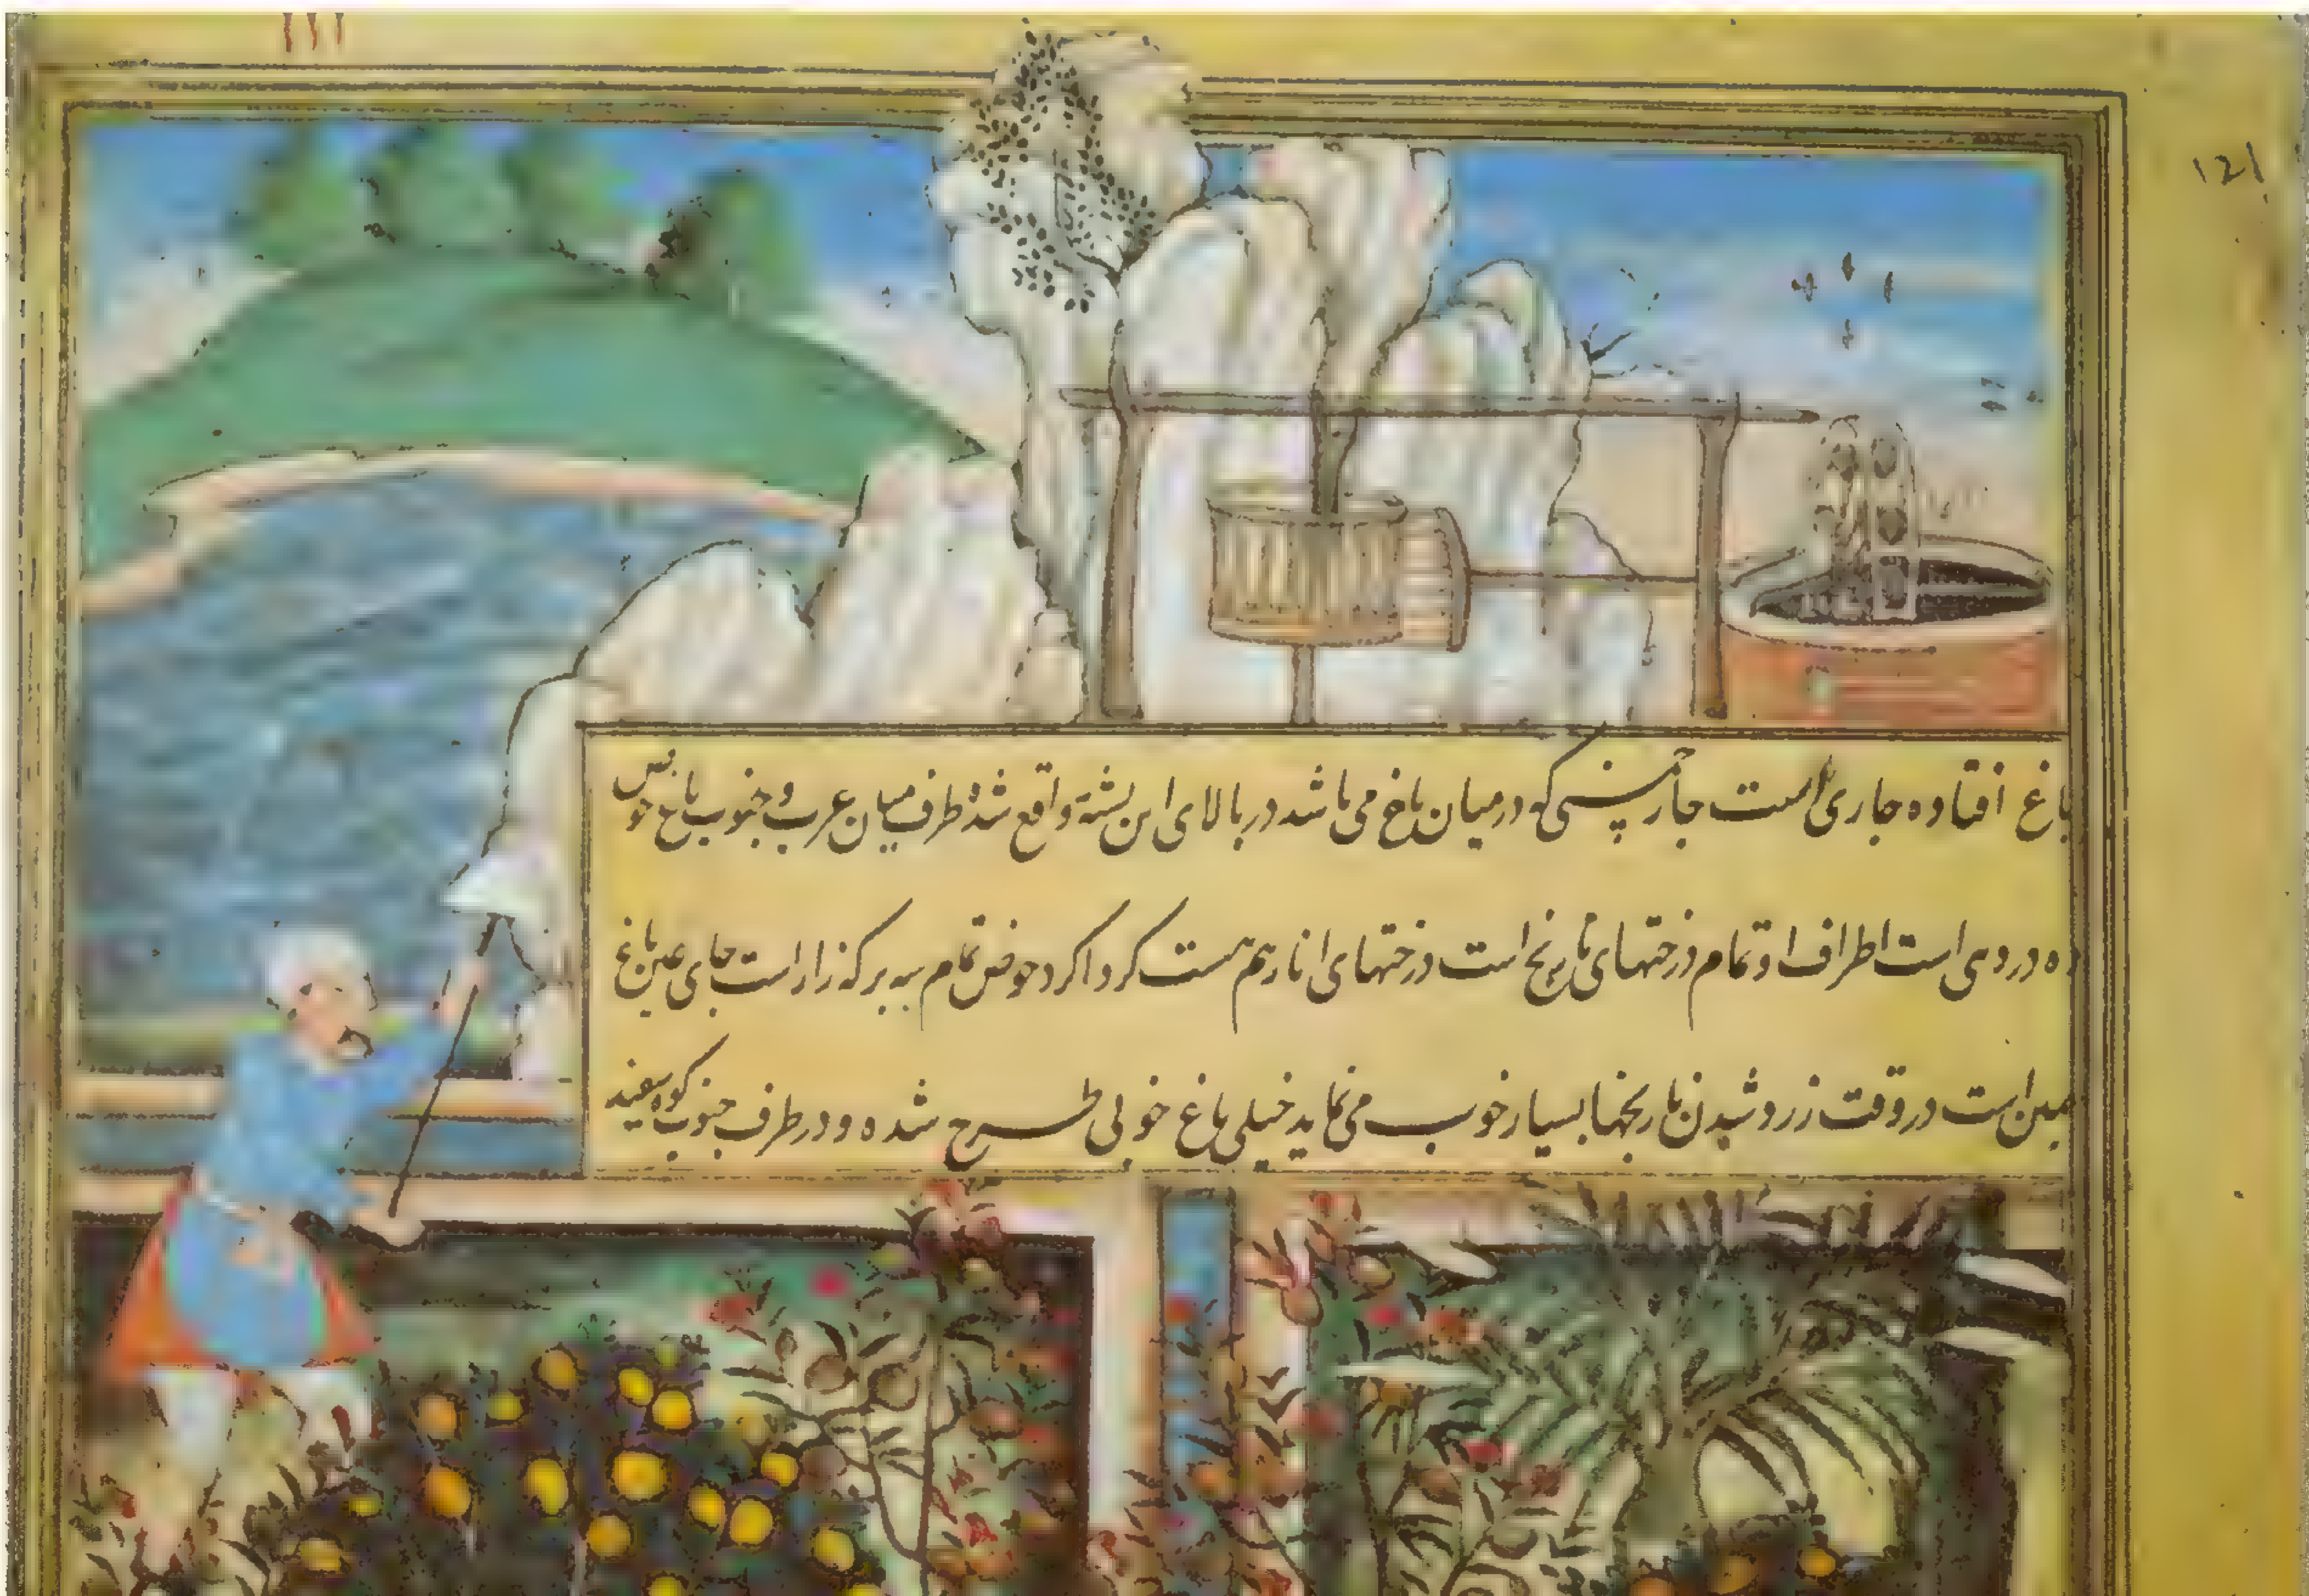 ۱۱۱
121
باغ افتاده جاری است چارچمنی که در میان باغ می باشد در بالای این پشته واقع شده طرف میان غرب و جنوب باغ حوض
ده در ده است اطراف او تمام درختهای نارنج است درختهای انار هم هست کرداکرد حوض تمام سه برکه زار است جای عین باغ
همین است در وقت زرد شدن نارنجها بسیار خوب می نماید خیلی باغ خوبی طرح شده و در طرف جنوب کوه سفید